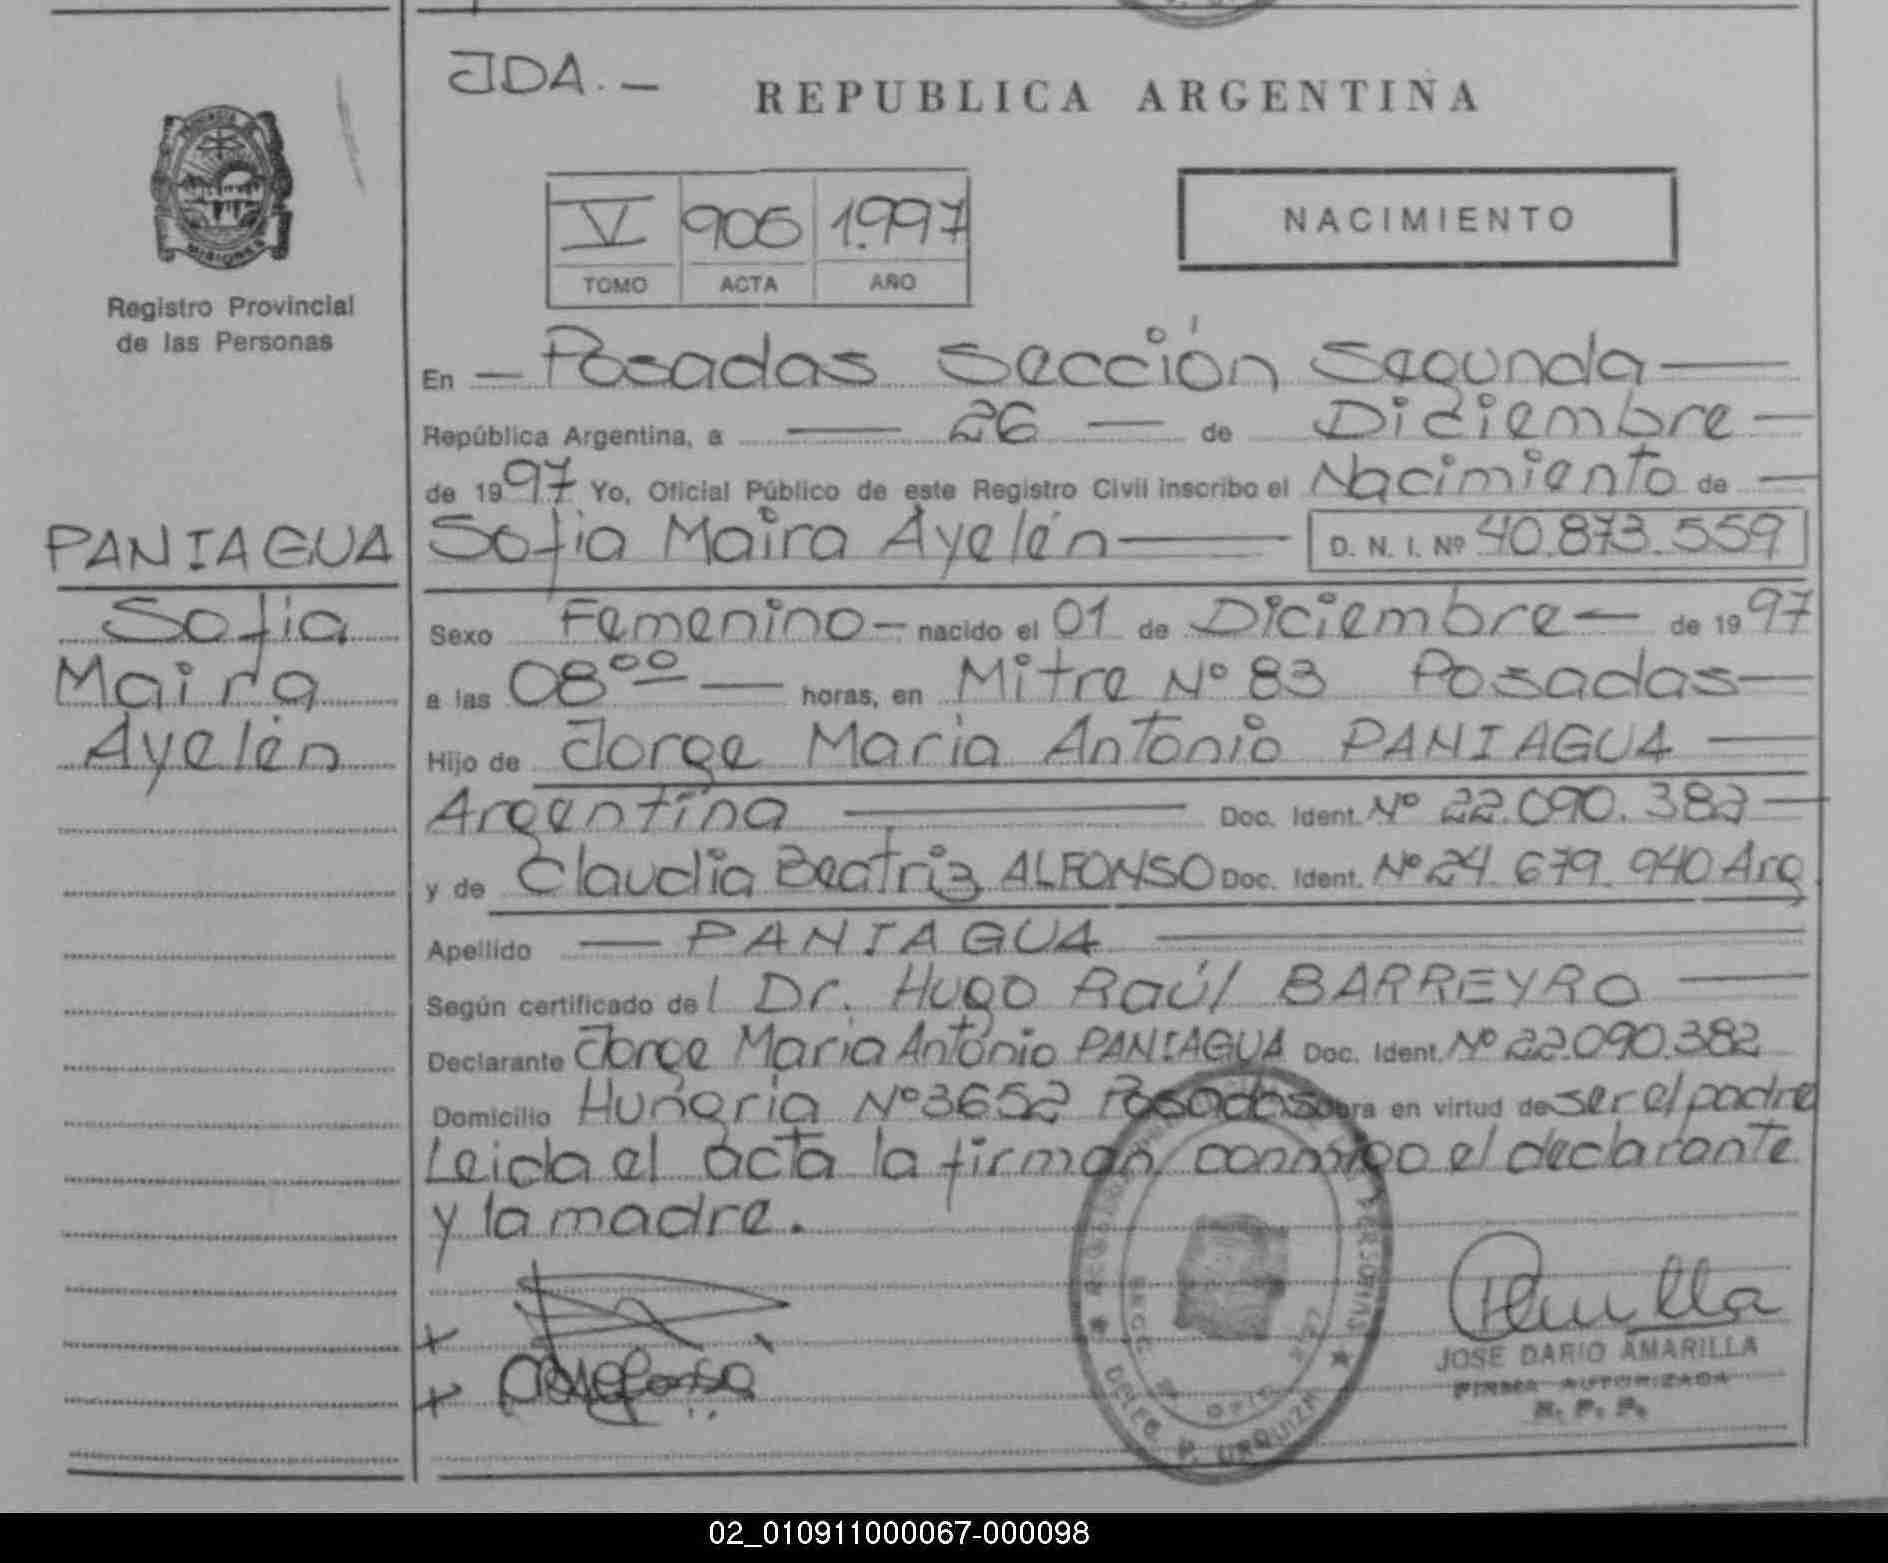 JDA.-
REPUBLICA ARGENTINA
V 905 1.997
TOMO ACTA AÑO
NACIMIENTO
Registro Provincial
de las Personas
En Posadas Sección Segunda
República Argentina, a 26 de Diciembre
de 1997 Yo, Oficial Público de este Registro Civil inscribo el Nacimiento de
PANIAGUA
Sofia Maira Ayelén D. N. I. Nº 40.873.559
Sofia
Maira
Ayelén
Sexo Femenino - nacido el 01 de Diciembre - de 1997
a las 08⁰⁰ horas, en Mitre Nº 83 Posadas
Hijo de Jorge Maria Antonio PANIAGUA
Argentina Doc. Ident. Nº 22.090.382
y de Claudia Beatriz ALFONSO Doc. Ident. Nº 24.679.940 Arg
Apellido PANIAGUA
Según certificado del Dr. Hugo Raúl BARREYRO
Declarante Jorge Maria Antonio PANIAGUA Doc. Ident. Nº 22.090.382
Domicilio Hungria Nº 3652 Posadas obra en virtud de ser el padre
Leida el acta la firman conmigo el declarante
y la madre.
JOSE DARIO AMARILLA
FIRMA AUTORIZADA
R. P. P.
02_010911000067-000098